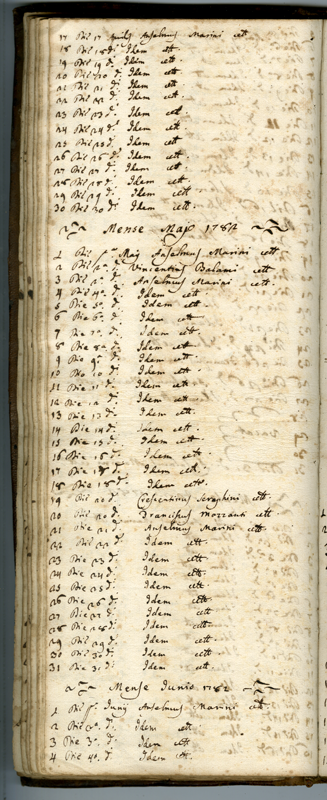 17 Die 17 Aprilis Anselmus Marini ett.
18 Die 18 d.i Idem ett.
19 Die 19 d.i Idem ett.
20 Die 20 d.i Idem ett.
21 Die 21 d.i Idem ett.
22 Die 22 d.i Idem ett.
23 Die 23 d.i Idem ett.
24 Die 24 d.i Idem ett.
25 Die 25 d.i Idem ett.
26 Die 26 d.i Idem ett.
27 Die 27 d.i Idem ett.
28 Die 28 d.i Idem ett.
29 Die 29 d.i Idem ett.
30 Die 30 d.i Idem ett.
Mense Maji 1782
1 Die p.a Maij Anselmus Marini ett.
2 Die 2.a d.i Vincentius Balami ett.
3 Die 3.a d.i Anselmus Marini ett.
4 Die 4.a d.i Idem ett.
5 Die 5.a d.i Idem ett.
6 Die 6.a d.i Idem ett.
7 Die 7.a d.i Idem ett.
8 Die 8.a d.i Idem ett.
9 Die 9.a d.i Idem ett.
10 Die 10 d.i Idem ett.
11 Die 11 d.i Idem ett.
12 Die 12 d.i Idem ett.
13 Die 13 d.i Idem ett.
14 Die 14 d.i Idem ett.
15 Die 15 d.i Idem ett.
16 Die 16 d.i Idem ett.
17 Die 17 d.i Idem ett.
18 Die 18 d.i Idem ett.
19 Die d.i Crescentius Seraphini ett.
20 Die 20 d.i Franciscus Mozzanti ett.
21 Die 21 d.i Anselmus Marini ett.
22 Die 22 d.i Idem ett.
23 Die 23 d.i Idem ett.
24 Die 24 d.i Idem ett.
25 Die 25 d.i Idem ett.
26 Die 26 d.i Idem ett.
27 Die 27 d.i Idem ett.
28 Die 28 d.i Idem ett.
29 Die 29 d.i Idem ett.
30 Die 30 d.i Idem ett.
31 Die 31 d.i Idem ett.
Mense Junio 1782
1 Die p.a Junij Anselmus Marini ett.
2 Die 2.a d.i Idem ett.
3 Die 3.a d.i Idem ett.
4 Die 4.a d.i Idem ett.